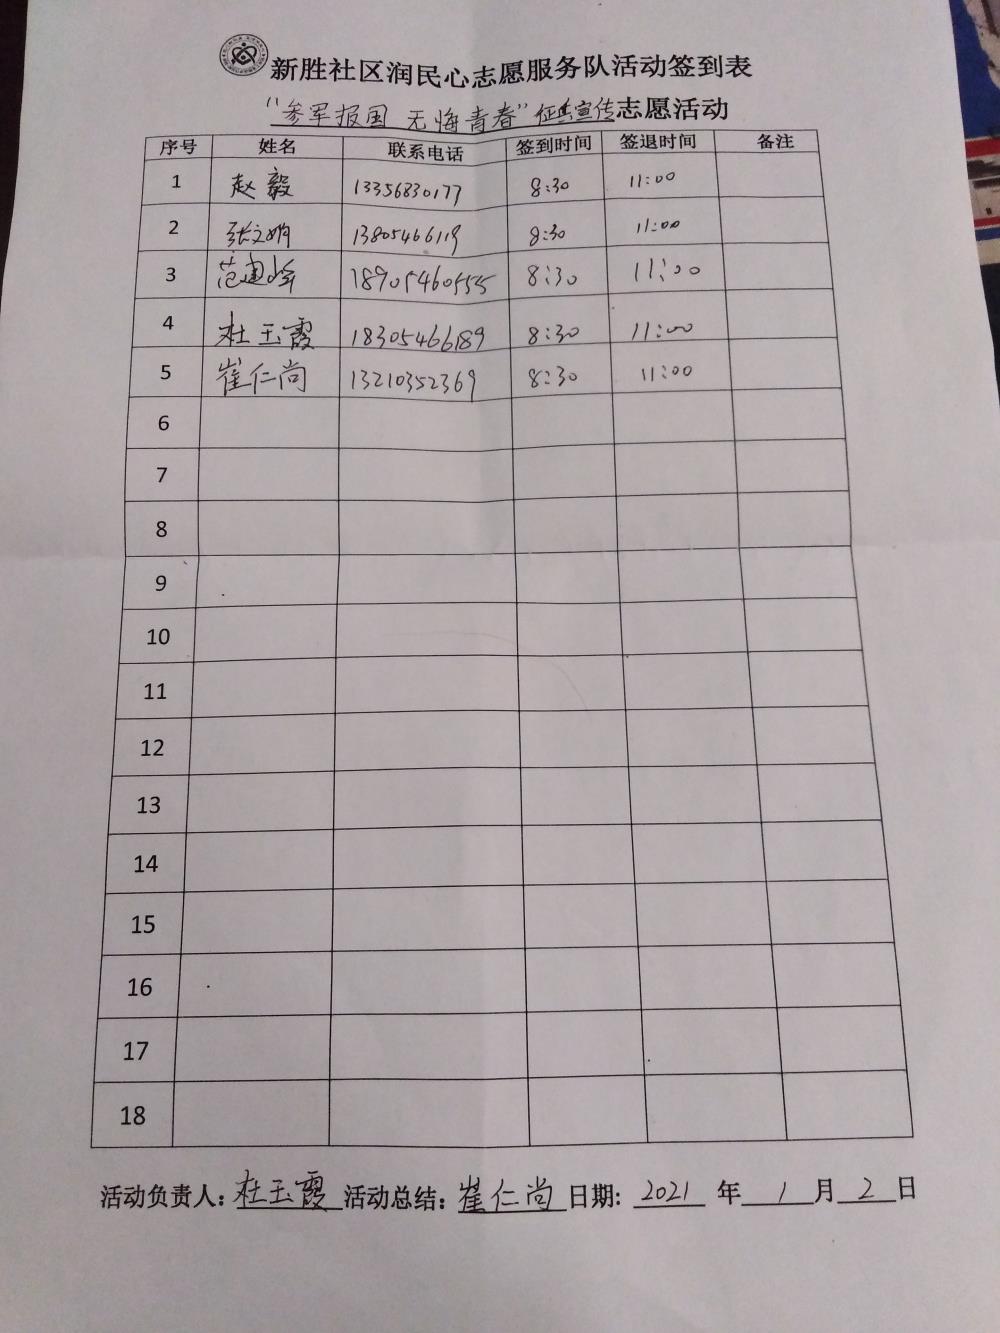 新胜社区润民心志愿服务队活动签到表
“参军报国 无悔青春”征兵宣传志愿活动
序号 姓名 联系电话 签到时间 签退时间 备注
1 赵毅 13356830177 8:30 11:00
2 张文娟 13805466119 8:30 11:00
3 范建峰 18905460555 8:30 11:00
4 杜玉霞 18305466189 8:30 11:00
5 崔仁尚 13210352369 8:30 11:00
6
7
8
9
10
11
12
13
14
15
16
17
18
活动负责人: 杜玉霞 活动总结: 崔仁尚 日期: 2021 年 1 月 2 日